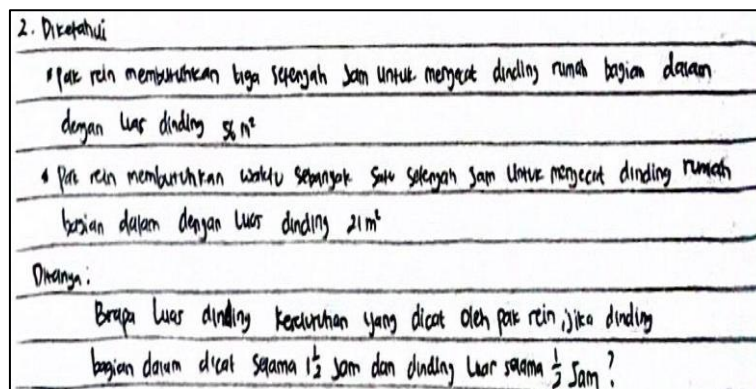 2. Diketahui
• Pak rein membutuhkan tiga setengah Jam untuk mengecat dinding rumah bagian dalam
dengan luas dinding 56 m²
• Pak rein membutuhkan waktu sebanyak satu setengah Jam untuk mengecat dinding rumah
bagian dalam dengan luas dinding 21 m²
Ditanya:
Brapa Luas dinding keseluruhan yang dicat oleh pak rein, jika dinding
bagian dalam dicat selama 1 1/2 Jam dan dinding luar selama 1/2 Jam?